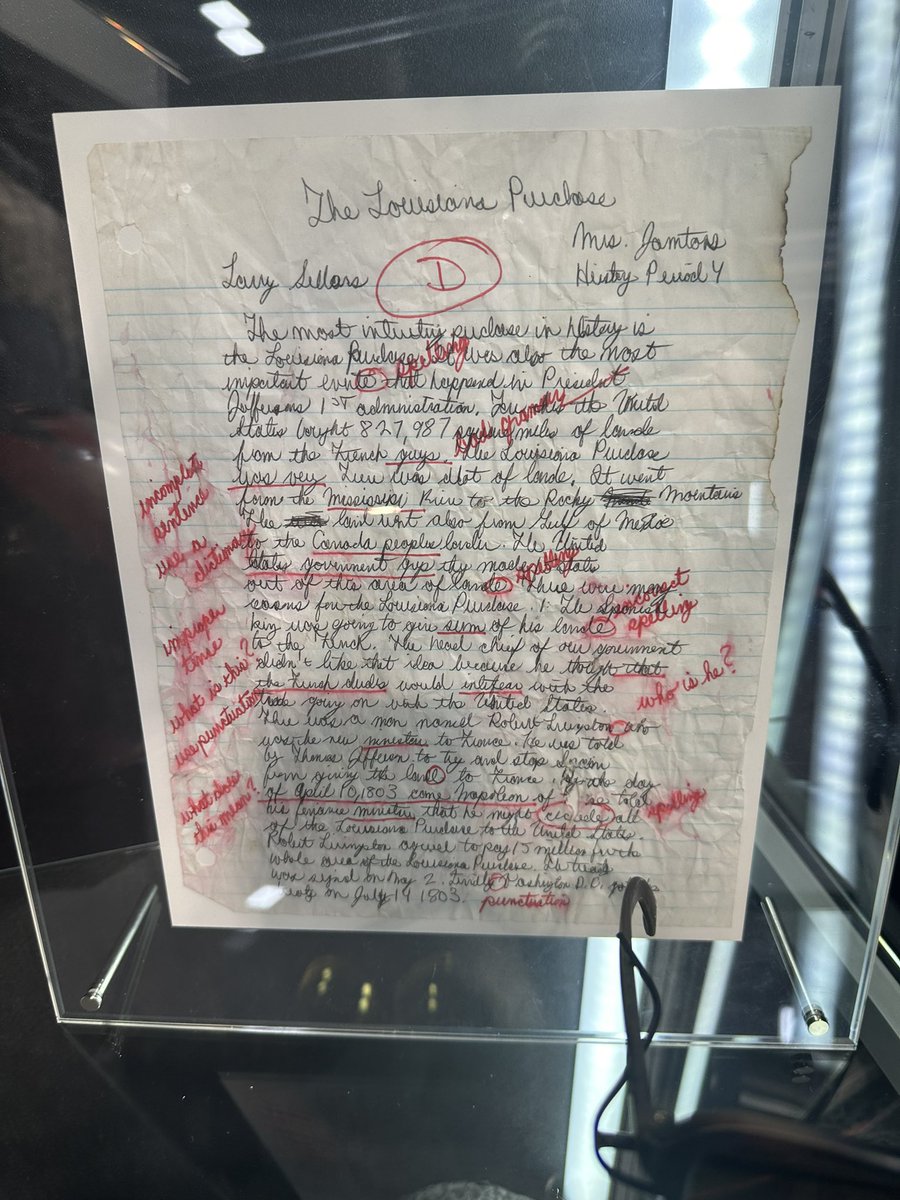 The Louisiana Purchase
Mrs. Jamtoss
Larry Sellars
D
History Period 4
The most intrustiry puchase in history is
the Louisiana Purchase. It was also the most
spelling
important evente that happend in President
Jeffersons 1ST adminstration. the United
bad grammar
States boryht 827,987 squaire miles of lande
from the French guys. The Louisiana Purchase
was vey. Tere was alot of lande. It went
incomplete
sentence
form the Mississussi River to the Rocky Mountains
The land wnt also from Gulf of Mexico
use a
dictionary
to the Canada peoples border. The United
States goverment gys thy made states
spelling
out of this area of lande. There were mangy
reasons for the Louisiana Purchase. 1. The Spanish
incorrect
spelling
king was going to give sym of his lande
improper
tense
to the French. The head chief of our gouernment
didn't like that idea because he thoght that
what is this?
the French dudes would intifear with the
who is he?
trade going on with the United States.
use punctuation
There was a man named Robert Livingston who
was the new ministire to France. He was told
by Thomas Jefferson to try and stop Spain
from giving the land to France. day
of April 10, 1803 came Napoleon of told
what does
this mean?
his finance ministire that he might cecede all
spelling
of the Louisiana Purchase to the United States.
Robert Livingston agreed to pay 15 million for the
whole area of the Louisiana Purchase. treaty
was signd on May 2. Finally Washington D.D.
treaty on July 14 1803.
punctuation